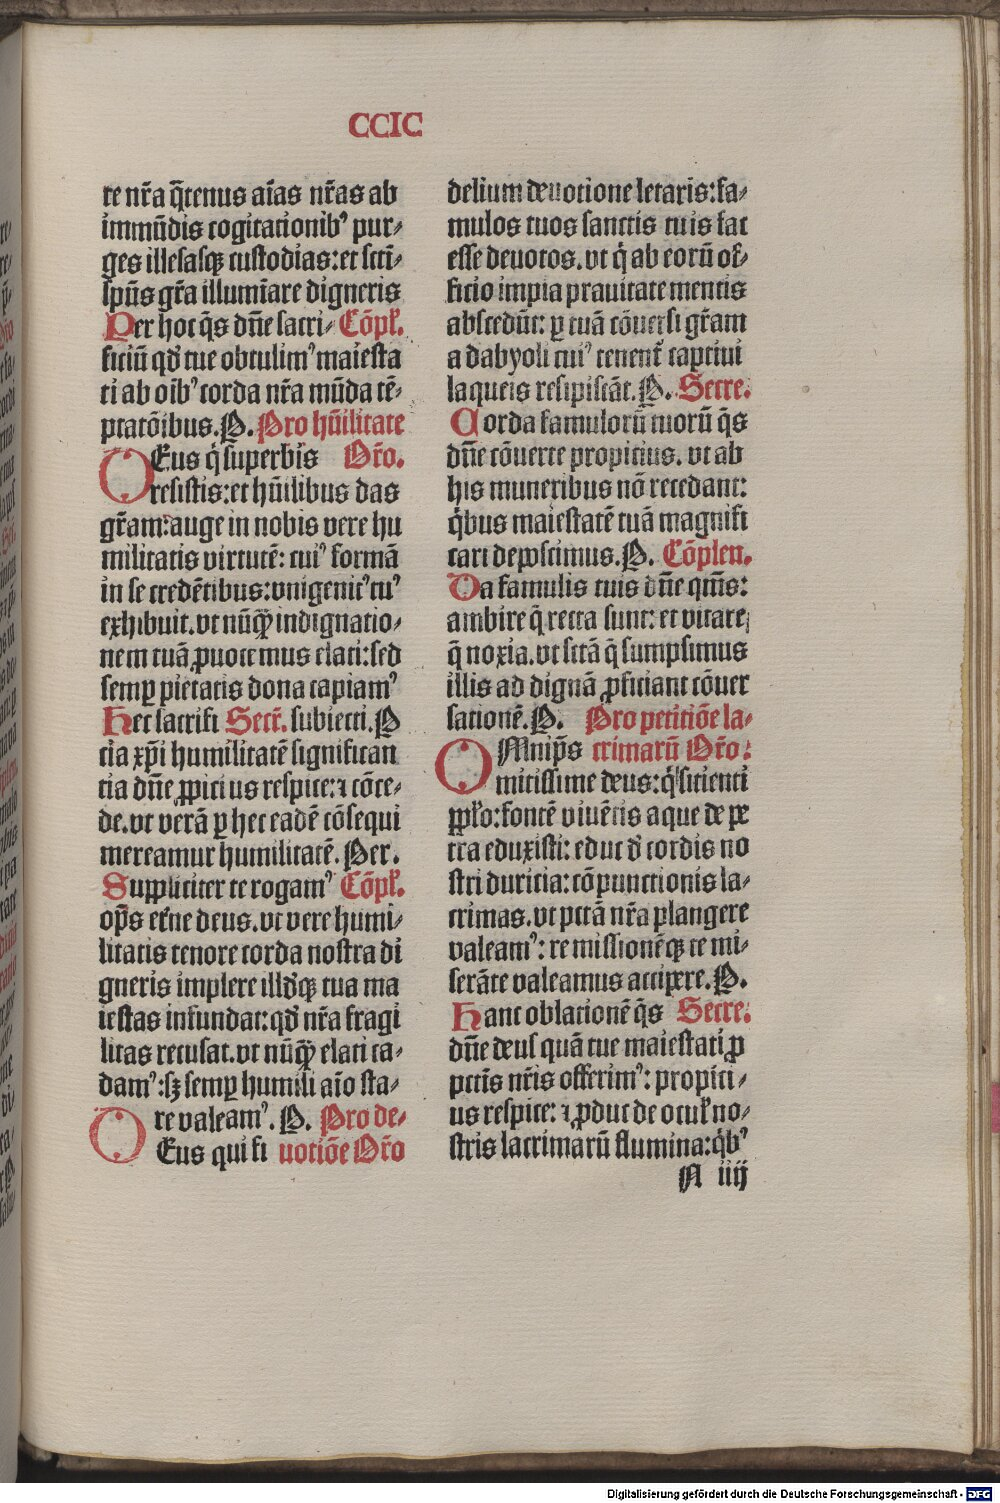 CCIC
te nr̃a q̃tenus aĩas nr̃as ab
immũdis cogitationibꝰ pur⸗
ges illesasqꝫ custodias:et scti⸗
spũs gr̃a illumiare digneris
Per hoc q̃s dñe sacri⸗ Cõpl̃.
ficiũ qđ tue obtulimꝰ maiesta
ti ab oĩbꝰ corda nr̃a mũda tẽ⸗
ptatõibus.P. Pro hũilitate
DEus q̇ superbis Or̃o.
resistis:et hũilibus das
gr̃am:auge in nobis vere hu
militatis virtutẽ: cuiꝰ formã
in se credẽtibus:vnigenitꝰ tuꝰ
exhibuit.vt nũqꝫ indignatio⸗
nem tuã ꝓuocemus elati:sed
semꝑ pietatis dona capiamꝰ
Hec sacrifi Secr̃. subiecti.P
cia xp̃i humilitatẽ significan
tia dñe ꝓpicius respice:⁊ cõce⸗
de.vt verã ꝑ hec eadẽ cõsequi
mereamur humilitatẽ. Per.
Suppliciter te rogamꝰ Cõpl̃.
op̃s et̃ne deus.vt vere humi⸗
litatis tenore corda nostra di
gneris implere illđqꝫ tua ma
iestas infundat:qđ nr̃a fragi
litas recusat.vt nũqꝫ elati ca⸗
damꝰ:sꝫ semꝑ humili aĩo sta⸗
re valeamꝰ. P. Pro de⸗
DEus qui fi uotiõe Or̃o
delium deuotione letaris:fa⸗
mulos tuos sanctis tuis fac
esse deuotos.vt q̇ ab eorũ of⸗
ficio impia prauitate mentis
abscedũt: ꝑ tuã cõuersi gr̃am
a dabyoli cuiꝰ tenent̃ captiui
laqueis resipiscãt.P. Secre.
Corda famulorũ tuorũ q̃s
dñe cõuerte propicius. vt ab
his muneribus nõ recedant:
q̇bus maiestatẽ tuã magnifi
cari deposcimus.P. Cõplen.
Da famulis tuis dñe q̃ms:
ambire q̃ recta sunt: et vitare
q̃ noxia.vt sctã q̃ sumpsimus
illis ad dignã ꝓficiant cõuer
sationẽ.P. Pro petitiõe la⸗
OMnip̃s crimarũ Or̃o:
mitissime deus:q̇ sicienti
pplo:fontẽ viuẽtis aque de pe
tra eduxisti: educ đ cordis no
stri duricia:cõpunctionis la⸗
crimas.vt pctã nr̃a plangere
valeamꝰ: remissionẽqꝫ te mi⸗
serãte valeamus accipere.P.
Hanc oblationẽ q̃s Secre:
dñe deus quã tue maiestati ꝓ
pctis nr̃is offerimꝰ: propici⸗
us respice: ⁊ ꝓduc de ocul̃ no⸗
stris lacrimarũ flumina:q̇bꝰ
A iiij
Digitalisierung gefördert durch die Deutsche Forschungsgemeinschaft - DFG